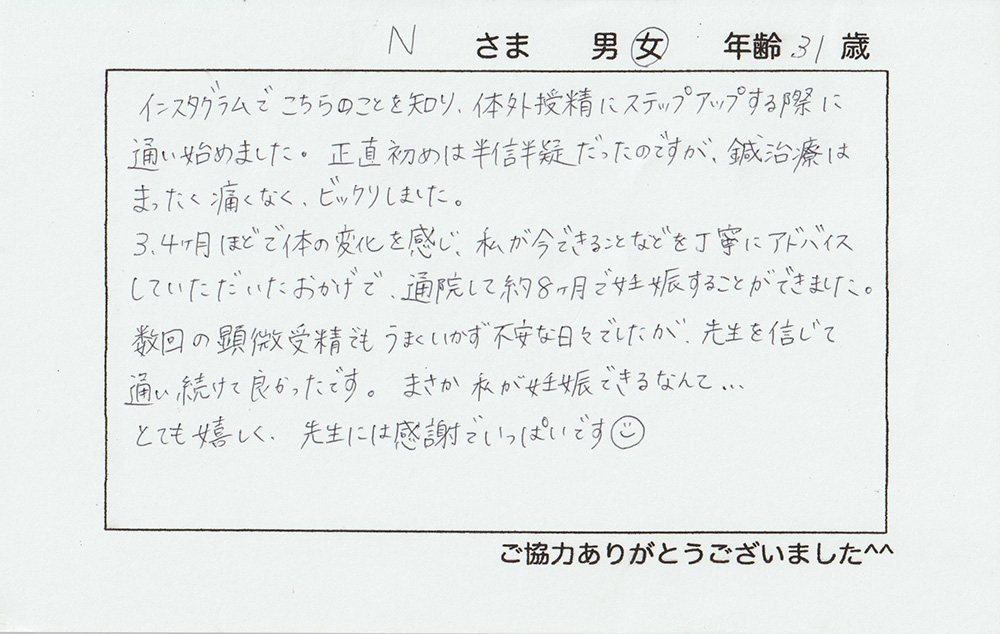 N さま 男 女 年齢 31 歳
インスタグラムでこちらのことを知り、体外授精にステップアップする際に
通い始めました。正直初めは半信半疑だったのですが、鍼治療は
まったく痛くなく、ビックリしました。
3、4ヶ月ほどで体の変化を感じ、私が今できることなどを丁寧にアドバイス
していただいたおかげで、通院して約8ヶ月で妊娠することができました。
数回の顕微受精でもうまくいかず不安な日々でしたが、先生を信じて
通い続けて良かったです。まさか私が妊娠できるなんて…
とても嬉しく、先生には感謝でいっぱいです☺
ご協力ありがとうございました^^